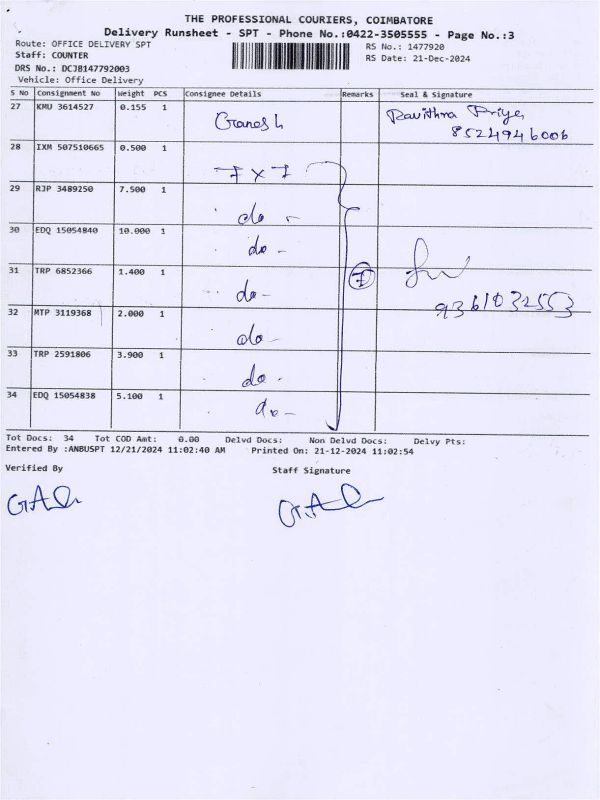 THE PROFESSIONAL COURIERS, COIMBATORE
Delivery Runsheet - SPT - Phone No.:0422-3505555 - Page No.:3
Route: OFFICE DELIVERY SPT
RS No.: 1477920
Staff: COUNTER
RS Date: 21-Dec-2024
DRS No.: DCJB147792003
Vehicle: Office Delivery
S No Consignment No Weight PCS Consignee Details Remarks Seal & Signature
27 KMU 3614527 0.155 1 Ganesh Pavithra Priya
8524946006
28 IXM 507510665 0.500 1 7 x 7
29 RJP 3489250 7.500 1 do -
30 EDQ 15054840 10.000 1 do -
31 TRP 6852366 1.400 1 do - 7
9361032553
32 MTP 3119368 2.000 1 do -
33 TRP 2591806 3.900 1 do -
34 EDQ 15054838 5.100 1 do -
Tot Docs: 34 Tot COD Amt: 0.00 Delvd Docs: Non Delvd Docs: Delvy Pts:
Entered By :ANBUSPT 12/21/2024 11:02:40 AM Printed On: 21-12-2024 11:02:54
Verified By Staff Signature